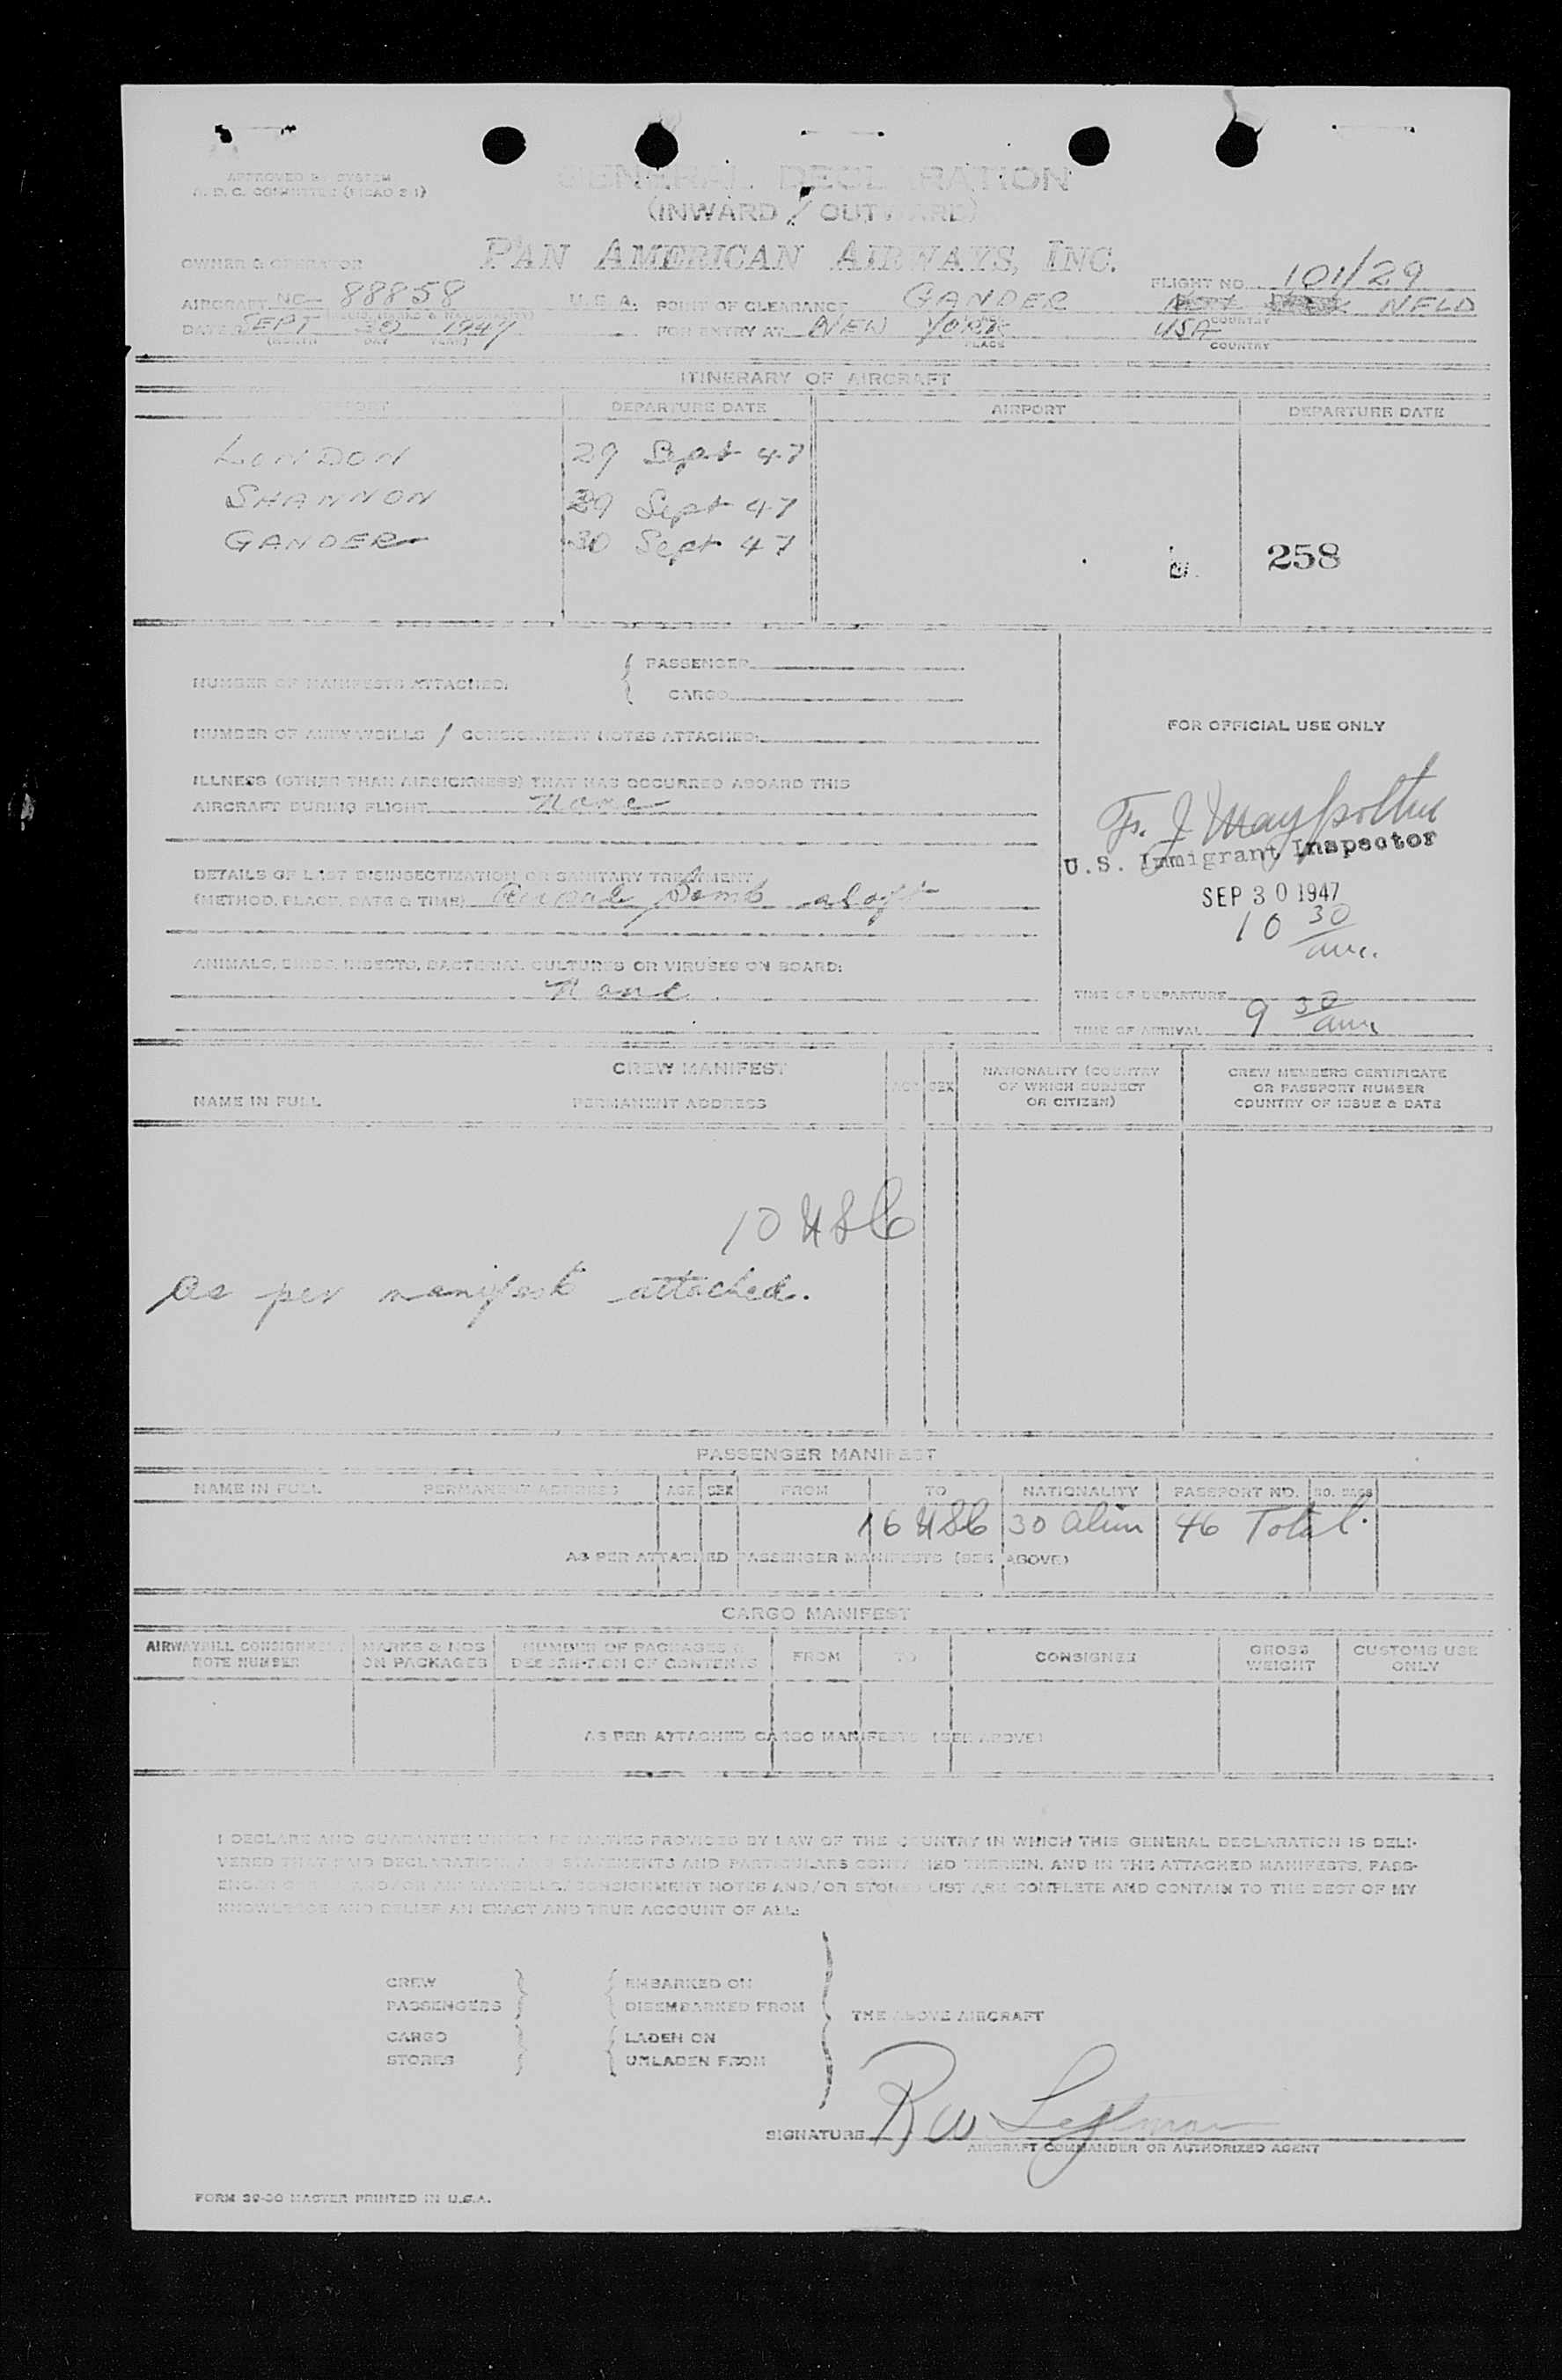 GENERAL DECLARATION
(INWARD / OUTWARD)
PAN AMERICAN AIRWAYS, INC.
OWNER & OPERATOR
FLIGHT NO. 101/29
AIRCRAFT NC- 88858 U. S. A. POINT OF CLEARANCE GANDER NFLD
(REGIS. MARKS & NATIONALITY) PLACE COUNTRY
DATE SEPT 30 1947 FOR ENTRY AT NEW YORK USA
(MONTH DAY YEAR) PLACE COUNTRY
ITINERARY OF AIRCRAFT
AIRPORT DEPARTURE DATE AIRPORT DEPARTURE DATE
LONDON 29 Sept 47
SHANNON 29 Sept 47
GANDER 30 Sept 47
258
NUMBER OF MANIFESTS ATTACHED:
PASSENGER
CARGO
NUMBER OF AIRWAYBILLS / CONSIGNMENT NOTES ATTACHED:
ILLNESS (OTHER THAN AIRSICKNESS) THAT HAS OCCURRED ABOARD THIS
AIRCRAFT DURING FLIGHT None
DETAILS OF LAST DISINSECTIZATION OR SANITARY TREATMENT
(METHOD, PLACE, DATE & TIME) Bomb aloft
ANIMALS, BIRDS, INSECTS, BACTERIAL CULTURES OR VIRUSES ON BOARD:
None
FOR OFFICIAL USE ONLY
U. S. Immigrant Inspector
SEP 30 1947
10 30 am.
TIME OF DEPARTURE
TIME OF ARRIVAL 9 30 am
CREW MANIFEST
NAME IN FULL PERMANENT ADDRESS AGE SEX NATIONALITY (COUNTRY OF WHICH SUBJECT OR CITIZEN) CREW MEMBERS CERTIFICATE OR PASSPORT NUMBER COUNTRY OF ISSUE & DATE
10 USC
As per manifest attached.
PASSENGER MANIFEST
NAME IN FULL PERMANENT ADDRESS AGE SEX FROM TO NATIONALITY PASSPORT NO. NO. BAGS
16 USC 30 Alien 46 Total.
AS PER ATTACHED PASSENGER MANIFESTS (SEE ABOVE)
CARGO MANIFEST
AIRWAYBILL CONSIGNMENT NOTE NUMBER MARKS & NOS ON PACKAGES NUMBER OF PACKAGES & DESCRIPTION OF CONTENTS FROM TO CONSIGNEE GROSS WEIGHT CUSTOMS USE ONLY
AS PER ATTACHED CARGO MANIFESTS (SEE ABOVE)
I DECLARE AND GUARANTEE UNDER PENALTIES PROVIDED BY LAW OF THE COUNTRY IN WHICH THIS GENERAL DECLARATION IS DELI-
VERED THAT SAID DECLARATION, AND STATEMENTS AND PARTICULARS CONTAINED THEREIN, AND IN THE ATTACHED MANIFESTS, PASS-
ENGER AND/OR AIRWAYBILLS/CONSIGNMENT NOTES AND/OR STORES LIST ARE COMPLETE AND CONTAIN TO THE BEST OF MY
KNOWLEDGE AND BELIEF AN EXACT AND TRUE ACCOUNT OF ALL:
CREW EMBARKED ON
PASSENGERS DISEMBARKED FROM
THE ABOVE AIRCRAFT
CARGO LADEN ON
STORES UNLADEN FROM
SIGNATURE
AIRCRAFT COMMANDER OR AUTHORIZED AGENT
FORM 30-30 MASTER PRINTED IN U.S.A.